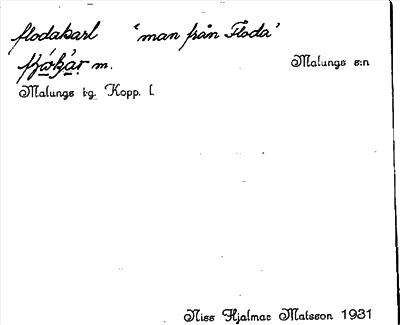 flodakarl 'man från Floda'
m. Malungs s:n
Malungs tg. Kopp. l.
Niss Hjalmar Matsson 1931